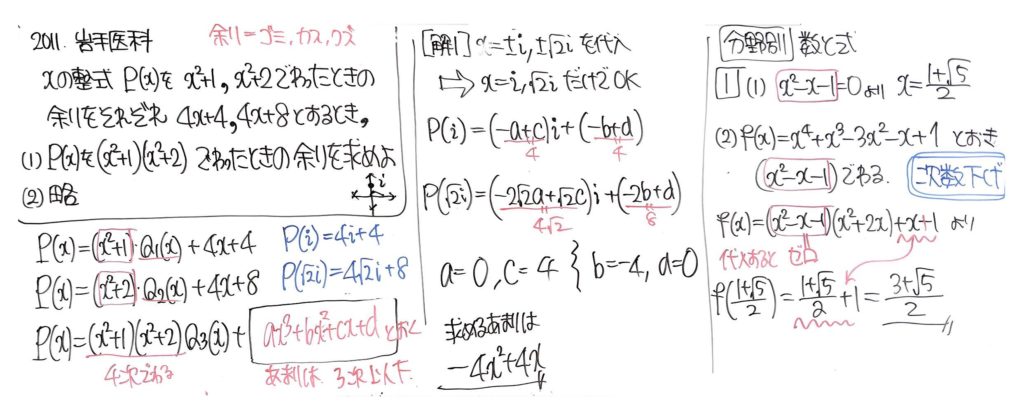 2011. 岩手医科
余り=ゴミ,カス,クズ
xの整式 P(x)を x²+1, x²+2 でわったときの
余りをそれぞれ 4x+4, 4x+8 とするとき,
(1) P(x)を(x²+1)(x²+2) でわったときの余りを求めよ
(2) 略
i
P(x)=(x²+1)·Q₁(x)+4x+4
P(i)=4i+4
P(x)=(x²+2)·Q₂(x)+4x+8
P(√2i)=4√2i+8
P(x)=(x²+1)(x²+2)Q₃(x)+ax³+bx²+cx+d とおく
4次でわる
あまりは 3次以下
[解1] x=±i, ±√2i を代入
⇒ x=i, √2i だけでOK
P(i)=(-a+c)i+(-b+d)
4 4
P(√2i)=(-2√2a+√2c)i+(-2b+d)
4√2 8
a=0, c=4 { b=-4, d=0
求めるあまりは
-4x²+4x
分野別 数と式
1 (1) x²-x-1=0より x=(1+√5)/2
(2) f(x)=x⁴+x³-3x²-x+1 とおき
(x²-x-1)でわる. 次数下げ
f(x)=(x²-x-1)(x²+2x)+x+1 より
代入すると ゼロ
f((1+√5)/2)=(1+√5)/2+1=(3+√5)/2